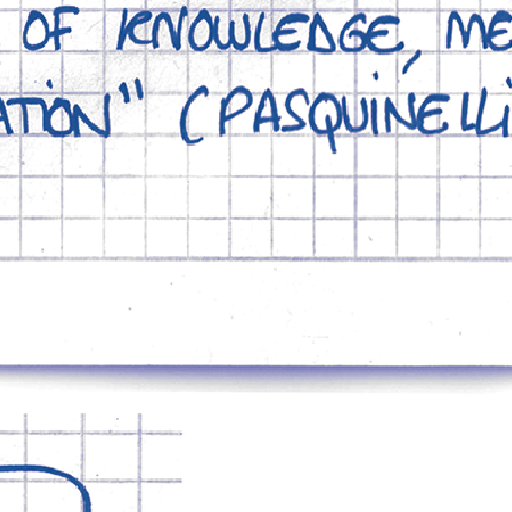 OF KNOWLEDGE, ME
ATION" (PASQUINELLI